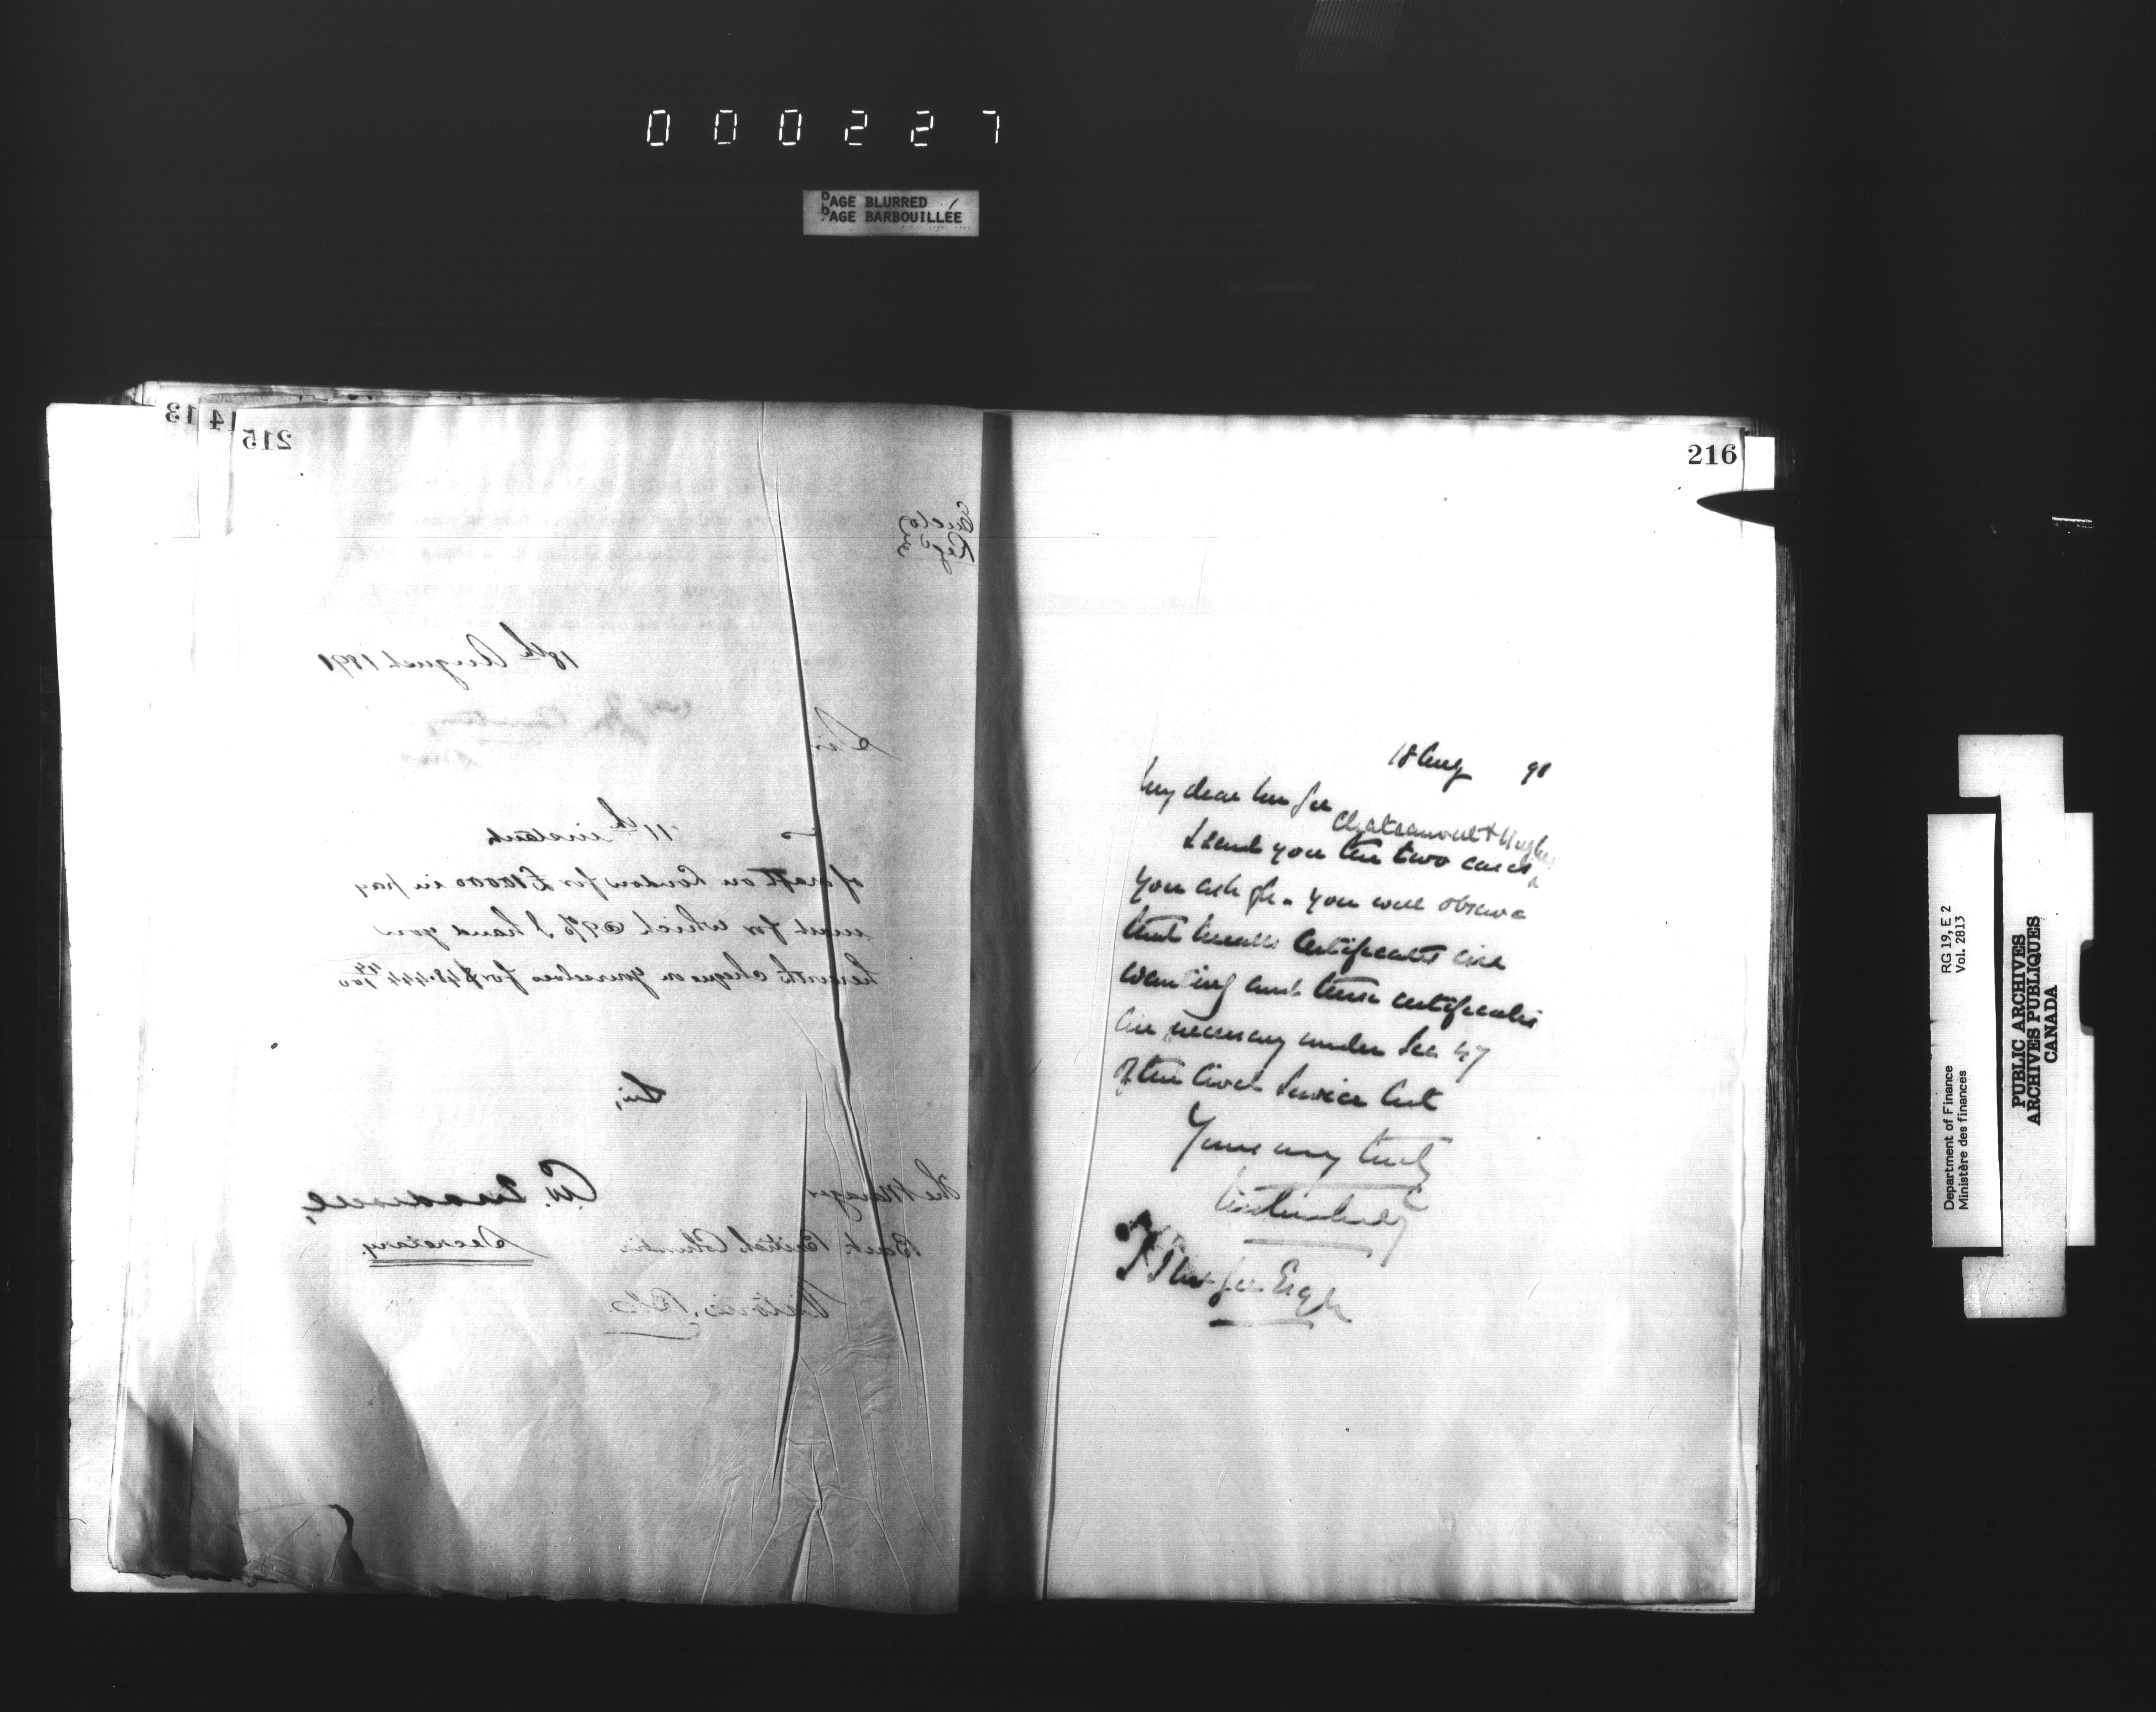 000227
PAGE BLURRED
PAGE BARBOUILLÉE
13
14
215
18th August 1891
Sir
11th instant
of draft on London for £10000 in pay
ment for which @ 9% I hand you
herewith cheque on yourselves for $48.444 44/100
Sir,
The Manager
Bank British Columbia
Victoria, B.C.
Secretary.
216
18 Aug 91
My dear
I send you the two cases
you ask for. You will observe
that Certificates are
wanting and these certificates
are necessary under Sec 47
of the Civil Service Act
Yours very truly
Esqre
Department of Finance
Ministère des finances
RG 19, E 2
Vol. 2813
PUBLIC ARCHIVES
ARCHIVES PUBLIQUES
CANADA